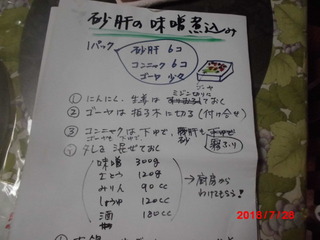 砂肝の味噌煮込み
1パック
砂肝 6コ
コンニャク 6コ
ゴーヤ 少々
ミジン切りに
① にんにく、生姜は しておく
② ゴーヤは拍子木に切る(付け合せ)
③ コンニャクは下ゆで、砂肝も
霜ふり
④ タレを混ぜておく
味噌 300g
さとう 120g
みりん 90cc
しょうゆ 120cc
酒 180cc
→厨房から
わけてもらう!
2018/7/28